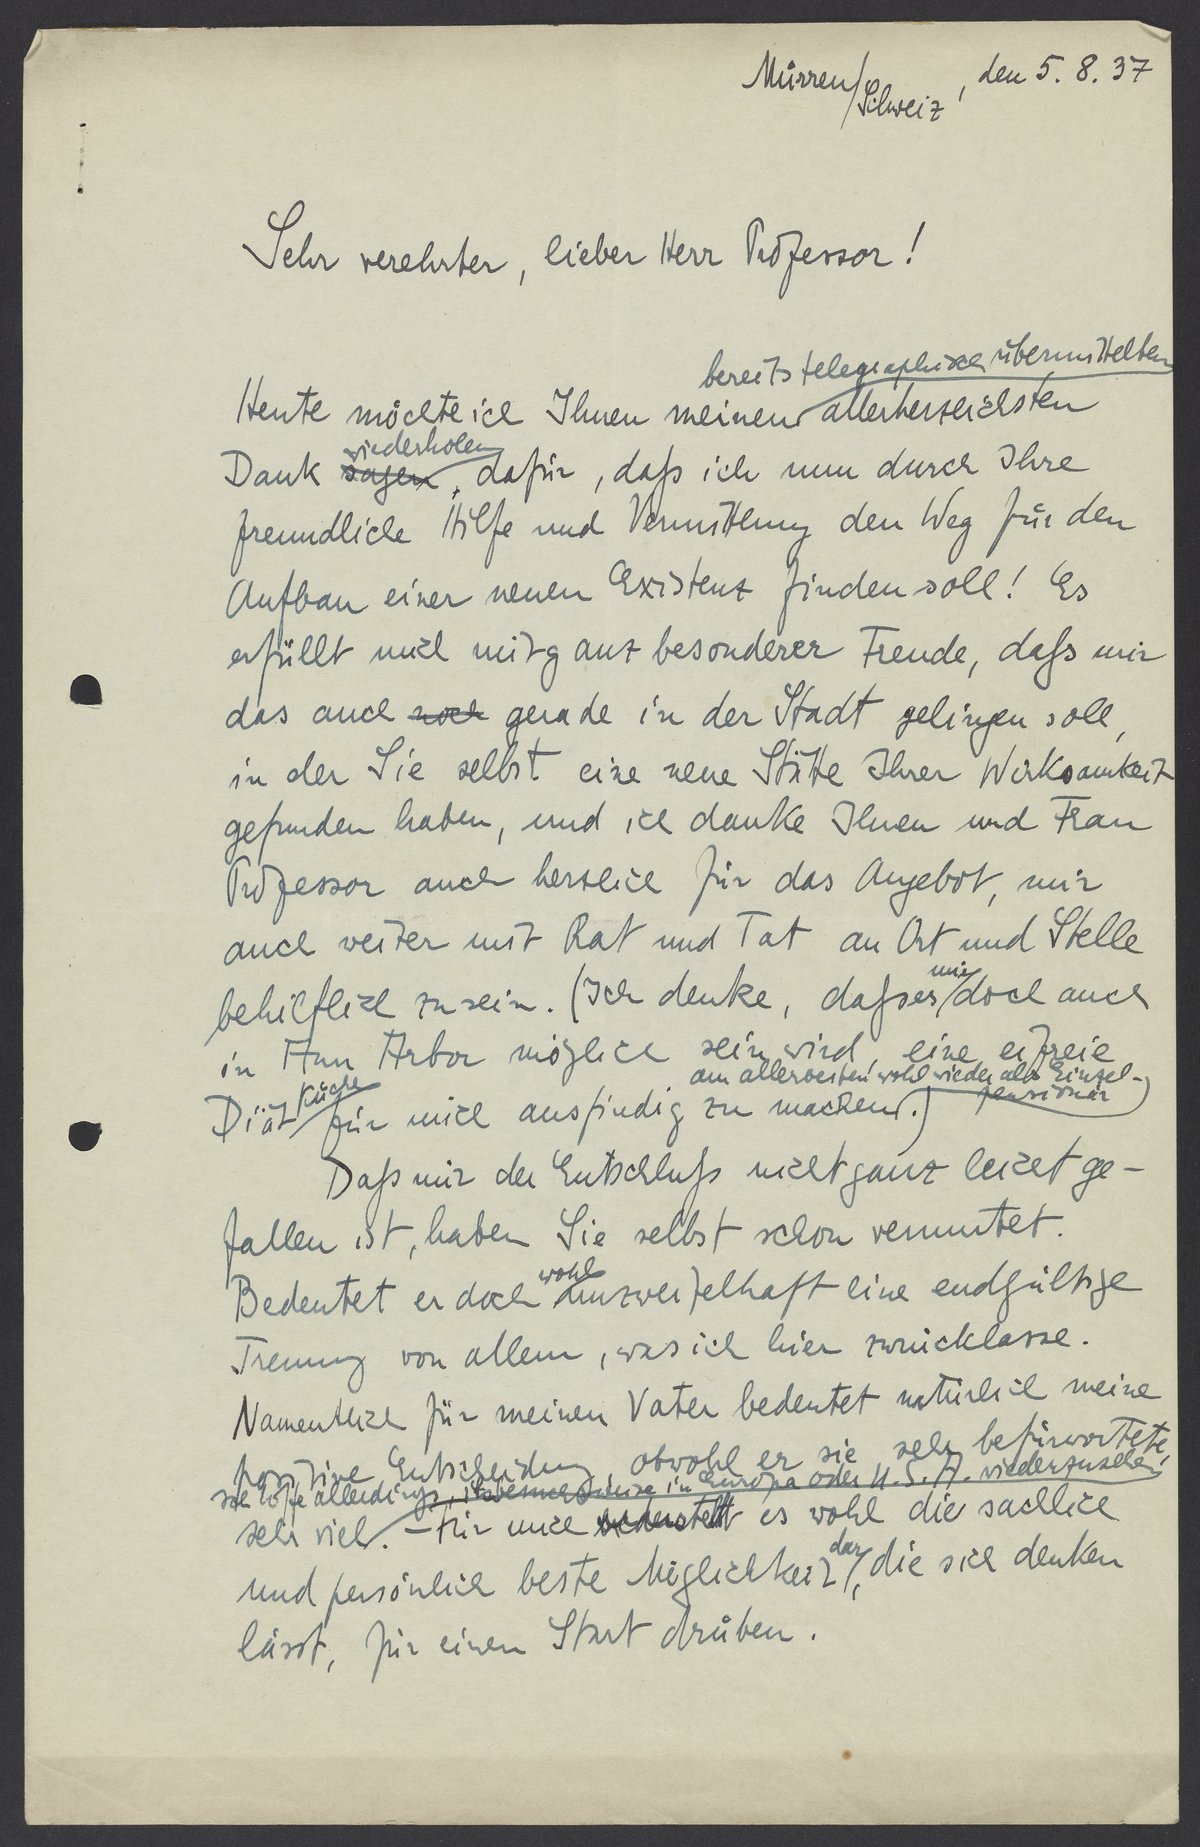 Mürren/Schweiz, den 5. 8. 37
Sehr verehrter, lieber Herr Professor!
bereits telegraphisch übermittelten
Heute möchte ich Ihnen meinen allerherzlichsten
wiederholen
Dank sagen, dafür, daß ich nun durch Ihre
freundliche Hilfe und Vermittlung den Weg für den
Aufbau einer neuen Existenz finden soll! Es
erfüllt mich mit ganz besonderer Freude, daß mir
das auch noch gerade in der Stadt gelingen soll,
in der Sie selbst eine neue Stätte Ihrer Wirksamkeit
gefunden haben, und ich danke Ihnen und Frau
Professor auch herzlich für das Angebot, mir
auch weiter mit Rat und Tat an Ort und Stelle
mir
behilflich zu sein. (Ich denke, daß es doch auch
in Ann Arbor möglich sein wird, eine eifreie
Küche am allerbesten wohl wieder als Einzel-
pensionär)
Diät für mich ausfindig zu machen.)
Daß mir der Entschluß nicht ganz leicht ge-
fallen ist, haben Sie selbst schon vermutet.
wohl
Bedeutet er doch unzweifelhaft eine endgültige
Trennung von allem, was ich hier zurücklasse.
Namentlich für meinen Vater bedeutet natürlich meine
positive Entscheidung, obwohl er sie sehr befürwortete,
ich hoffe allerdings, in Europa oder U.S.A. wiederzusehen
sehr viel. – Für mich es wohl die sachlich
dar
und persönlich beste Möglichkeit, die sich denken
lässt, für einen Start drüben.